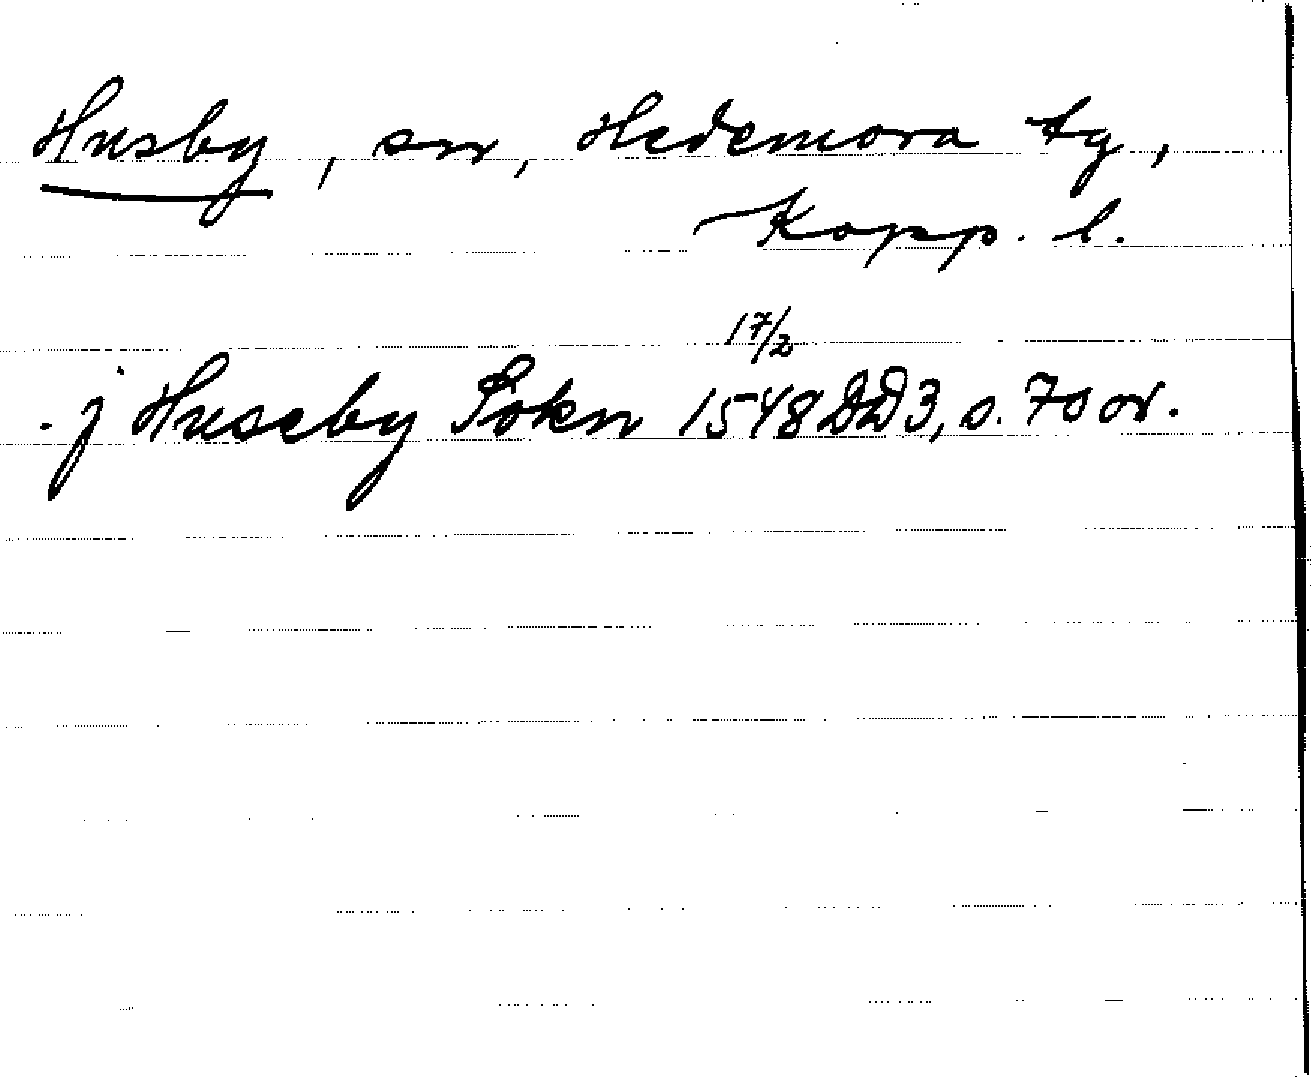 Husby, sn, Hedemora tg,
Kopp. l.
17/2
. j Huseby Sokn 1548 DD 3, s. 70 or.